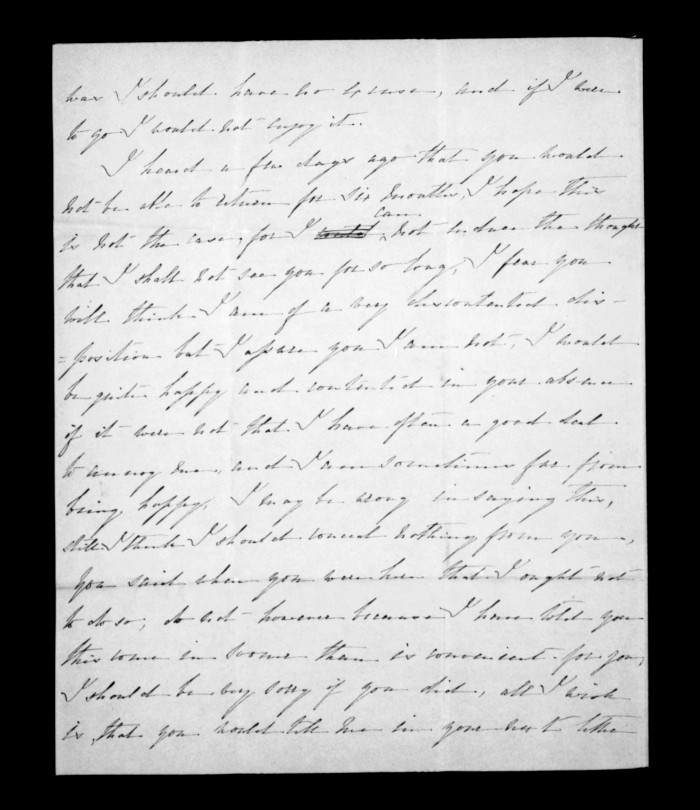 was I should have no excuse, and if I were
to go I would not enjoy it.
I heard a few days ago that you would
not be able to return for six months, I hope this
is not the case, for I can not endure the thought
that I shall not see you for so long, I fear you
will think I am of a very discontented dis-
=position but I assure you I am not, I would
be quite happy and contented in your absence
if it were not that I have often a good deal
to annoy me, and I am sometimes far from
being happy, I may be wrong in saying this,
still I think I should conceal nothing from you,
you said when you were here that I ought not
to do so, do not however because I have told you
this come in sooner than is convenient for you,
I should be very sorry if you did, all I wish
is that you would tell me in your next letter